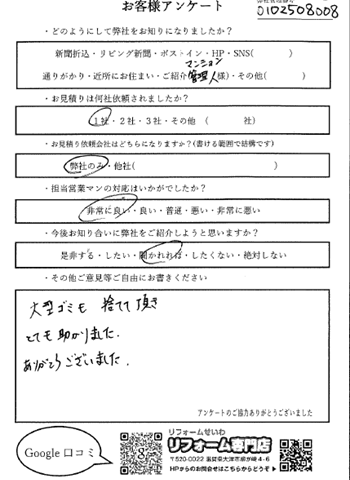 お客様アンケート
0102508008
・どのようにして弊社をお知りになりましたか？
新聞折込・リビング新聞・ポストイン・HP・SNS(　　　)
マンション
通りがかり・近所にお住まい・ご紹介(管理人様)・その他(　　　)
・お見積りは何社依頼されましたか？
1社・2社・3社・その他　(　　　社)
・お見積り依頼会社はどちらになりますか？(書ける範囲で結構です)
弊社のみ・他社(　　　)
・担当営業マンの対応はいかがでしたか？
非常に良い・良い・普通・悪い・非常に悪い
・今後お知り合いに弊社をご紹介しようと思いますか？
是非する・したい・聞かれれば・したくない・絶対しない
・その他ご意見等ご自由にお書きください
大型ゴミも 捨てて頂き
とても助かりました.
ありがとうございました.
アンケートのご協力ありがとうございました
Google 口コミ
リフォームせいわ
リフォーム専門店
〒520-0022 滋賀県大津市柳が崎4-6
HPからのお問合せはこちらからどうぞ▶